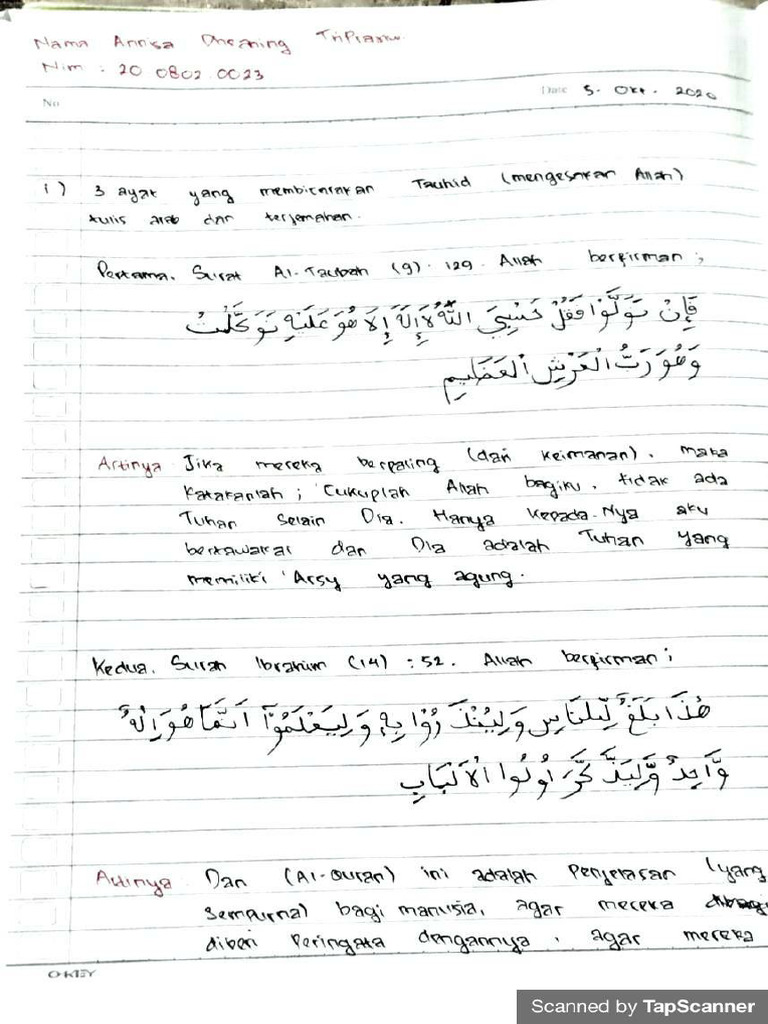 Nama Annisa Dheaning Tripraswi
Nim : 20 0802 0023
No
Date 5. Okt. 2020
1) 3 ayat yang membicarakan Tauhid (mengesakan Allah)
tulis arab dan terjemahan.
Pertama. Surat Al-Taubah (9). 129. Allah berfirman ;
فَإِنْ تَوَلَّوْا فَقُلْ حَسْبِيَ اللَّهُ لَا إِلَهَ إِلَّا هُوَ عَلَيْهِ تَوَكَّلْتُ
وَهُوَ رَبُّ الْعَرْشِ الْعَظِيمِ
Artinya Jika mereka berpaling (dari keimanan), maka
katakanlah ; 'Cukuplah Allah bagiku, tidak ada
Tuhan selain Dia. Hanya kepada-Nya aku
bertawakal dan Dia adalah Tuhan yang
memiliki 'Arsy yang agung.
Kedua. Surah Ibrahim (14) : 52. Allah berfirman ;
هٰذَا بَلٰغٌ لِّلنَّاسِ وَلِيُنْذَرُوْا بِهٖ وَلِيَعْلَمُوْٓا اَنَّمَا هُوَ اِلٰهٌ
وَّاحِدٌ وَّلِيَذَّكَّرَ اُولُوا الْاَلْبَابِ
Artinya Dan (Al-Quran) ini adalah Penjelasan (yang
sempurna) bagi manusia, agar mereka
diberi Peringata dengannya, agar mereka
O-KEY
Scanned by TapScanner